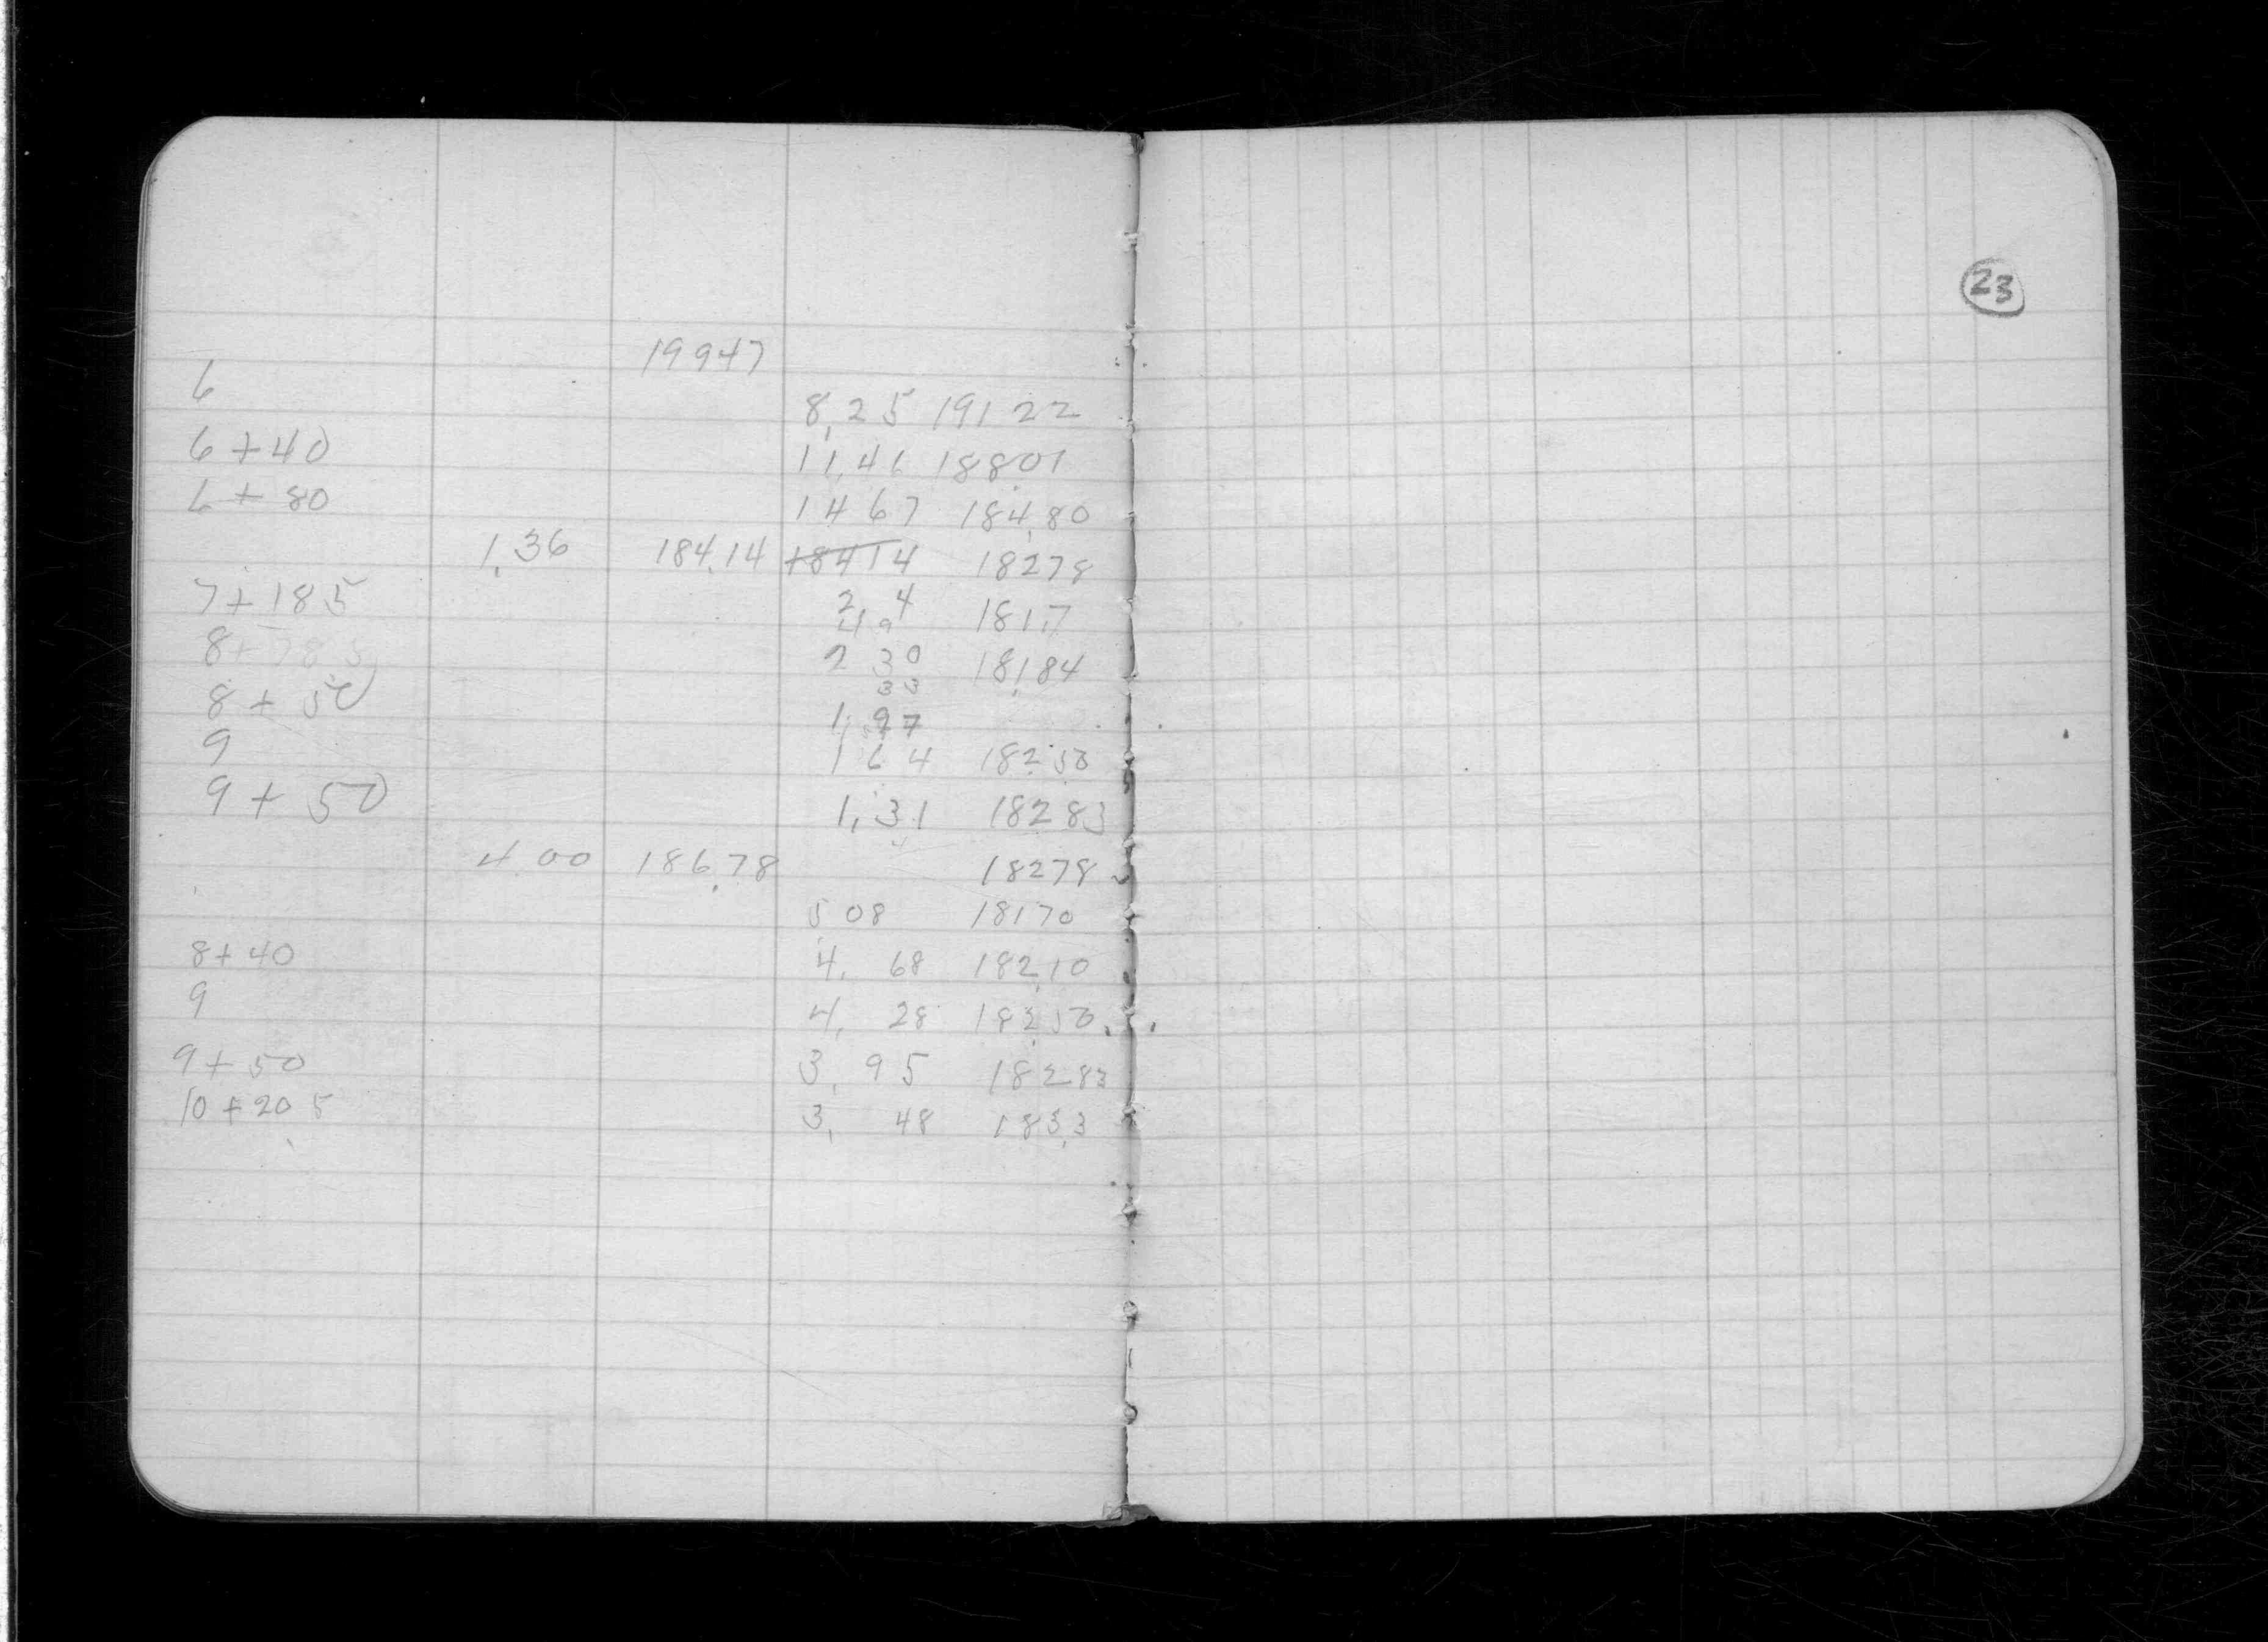 19947
6 8,25 19122
6+40 11,46 188.01
6+80 1467 184,80
1,36 184.14 18414 18278
7+185 2,4 181.7
49
8+785 2 30 181,84
33
8+50 1,97
9 164 18250
9+50 1,31 18283
4.00 186.78 18278
508 18170
8+40 4. 68 182,10
9 4. 28 18250
9+50 3. 95 18283
10+205 3, 48 183,3
23